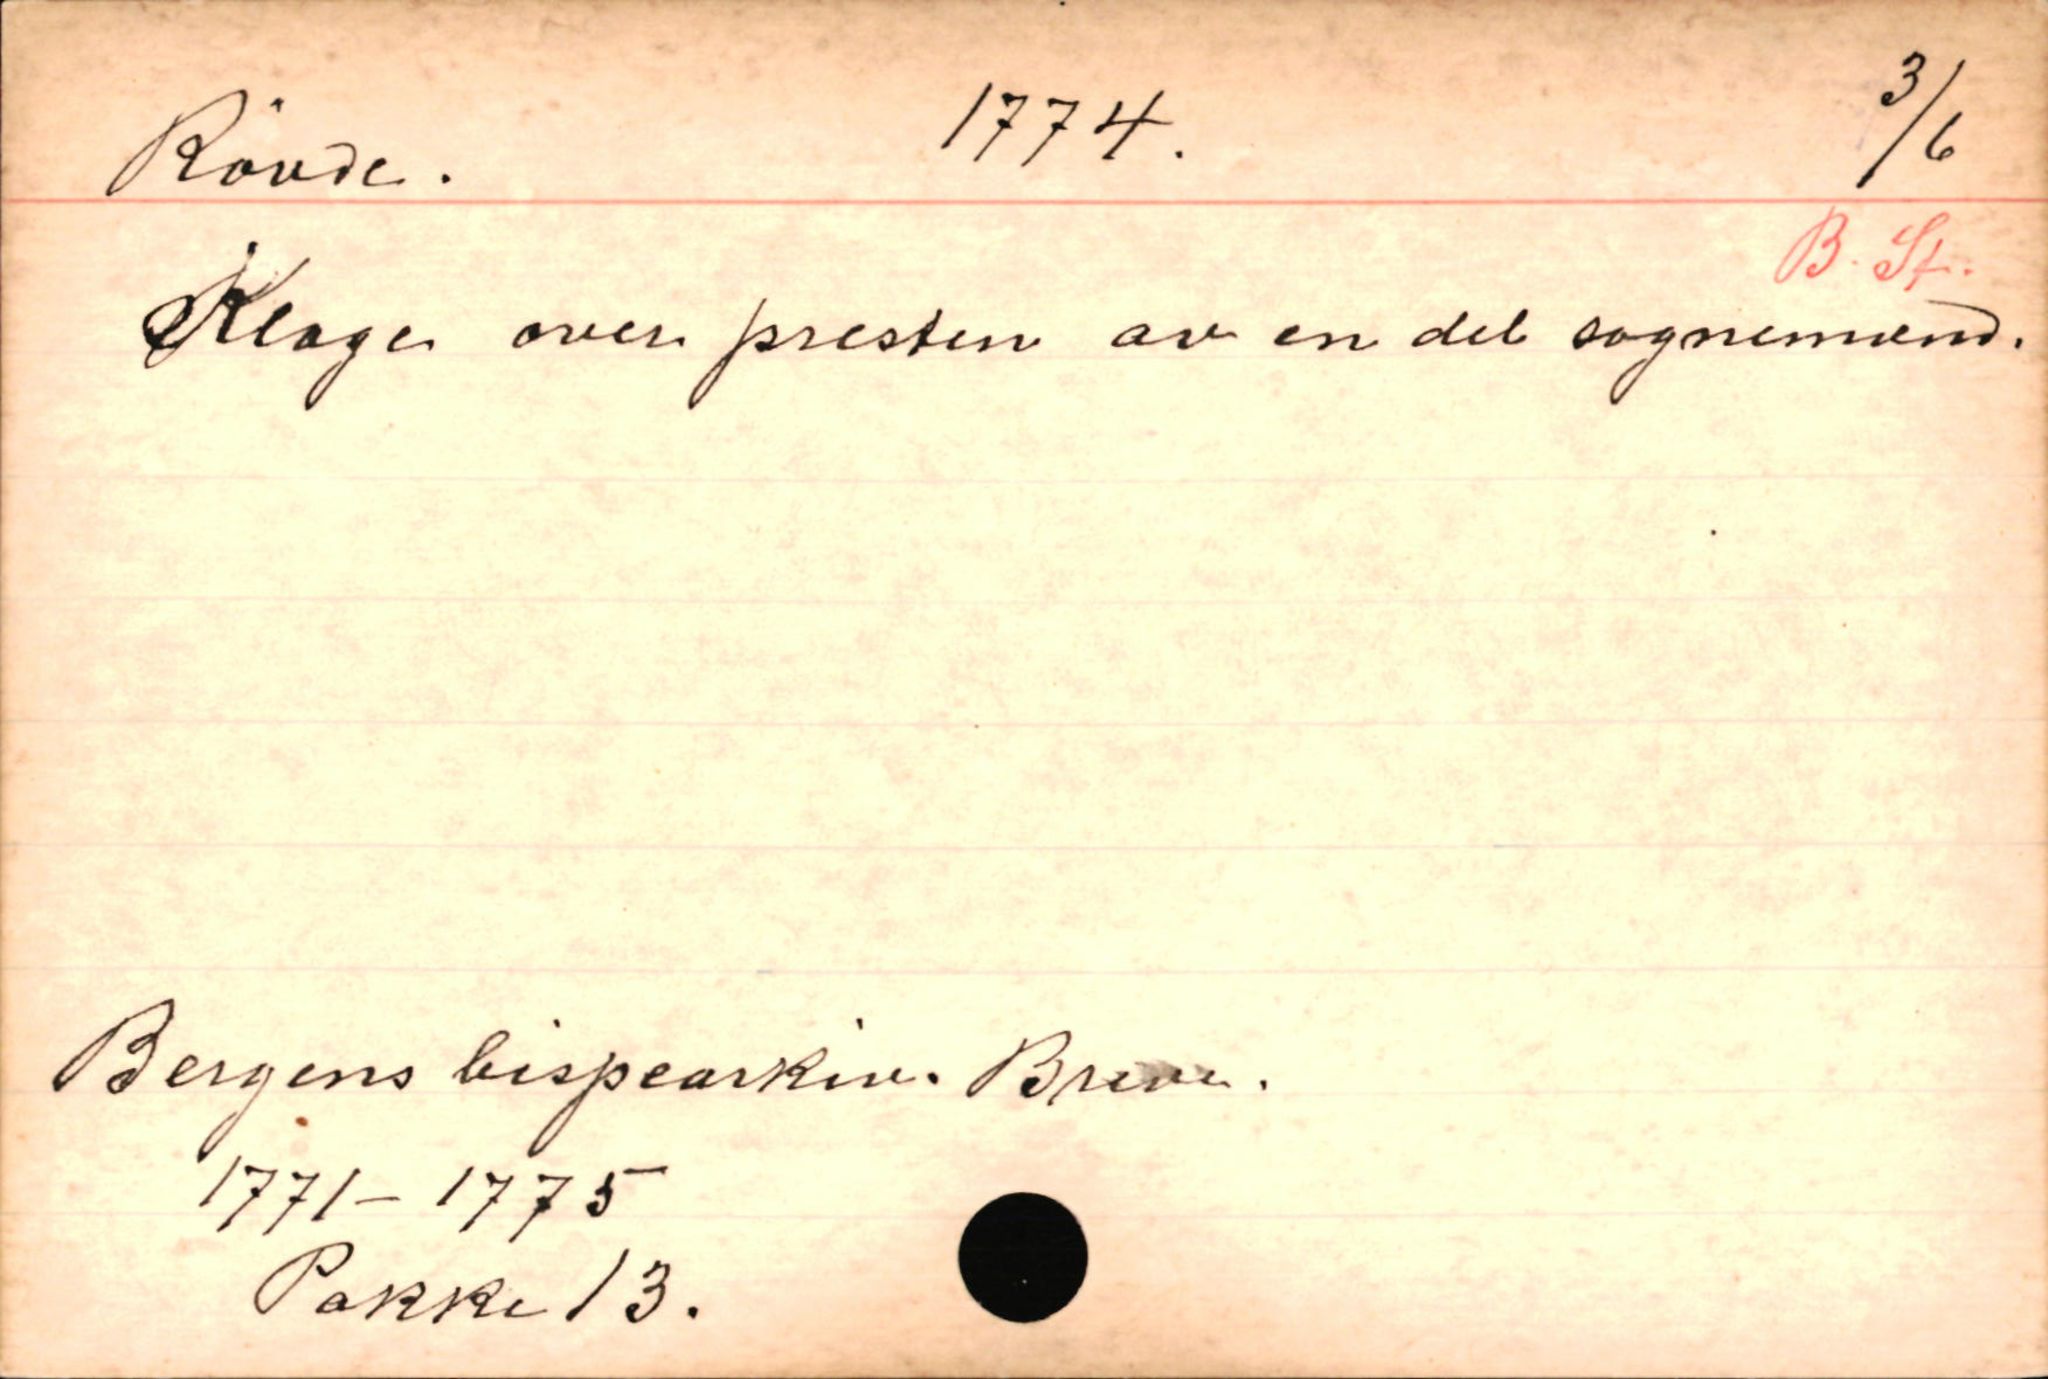 Rövde. 1774. 3/6
B. St.
Klage over presten av en del sognemænd.
Bergens bispearkiv. Breve.
1771-1775
Pakke 13.